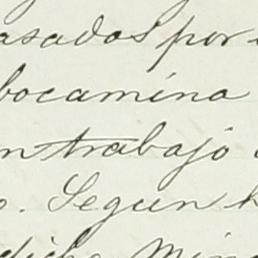 asados por
bocamina
n trabajo
o. Segun
dicha Mina